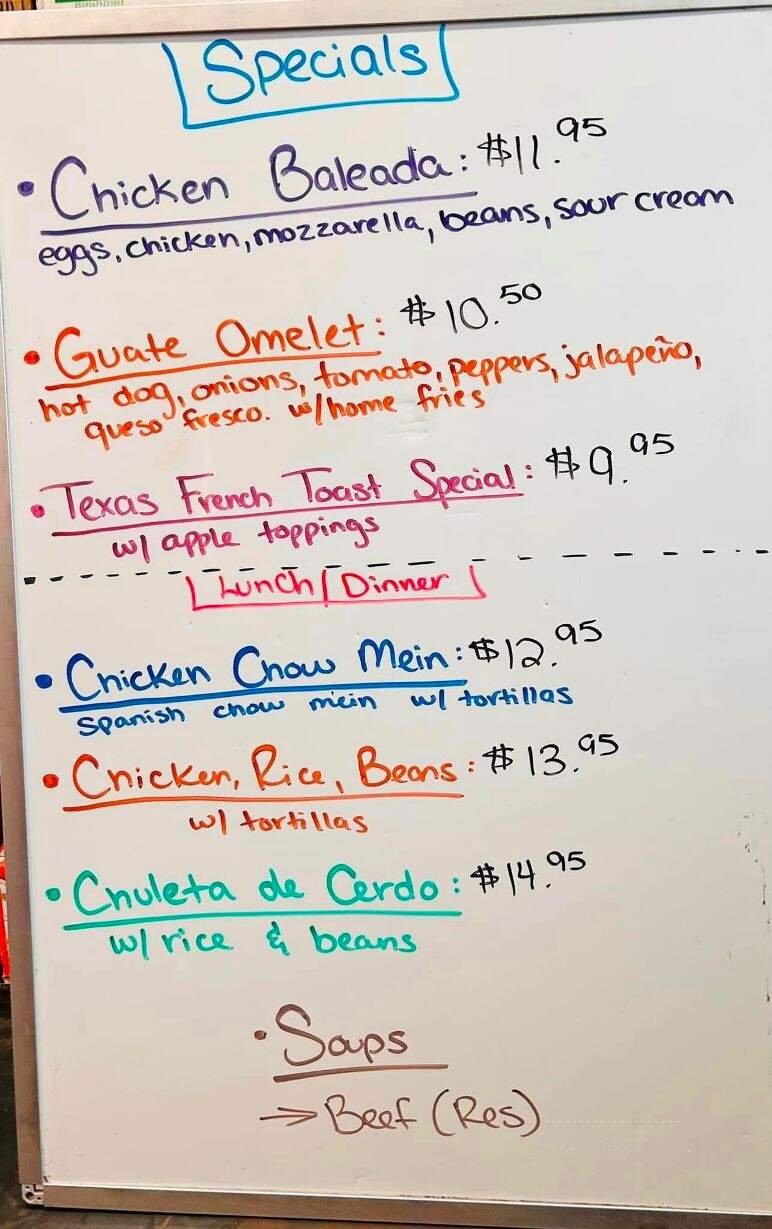 Specials
• Chicken Baleada: $11.95
eggs, chicken, mozzarella, beans, sour cream
• Guate Omelet: $10.50
hot dog, onions, tomato, peppers, jalapeño,
queso fresco. w/home fries
• Texas French Toast Special: $9.95
w/ apple toppings
Lunch/Dinner
• Chicken Chow Mein: $12.95
spanish chow mein w/ tortillas
• Chicken, Rice, Beans: $13.95
w/ tortillas
• Chuleta de Cerdo: $14.95
w/ rice & beans
• Soups
→ Beef (Res)